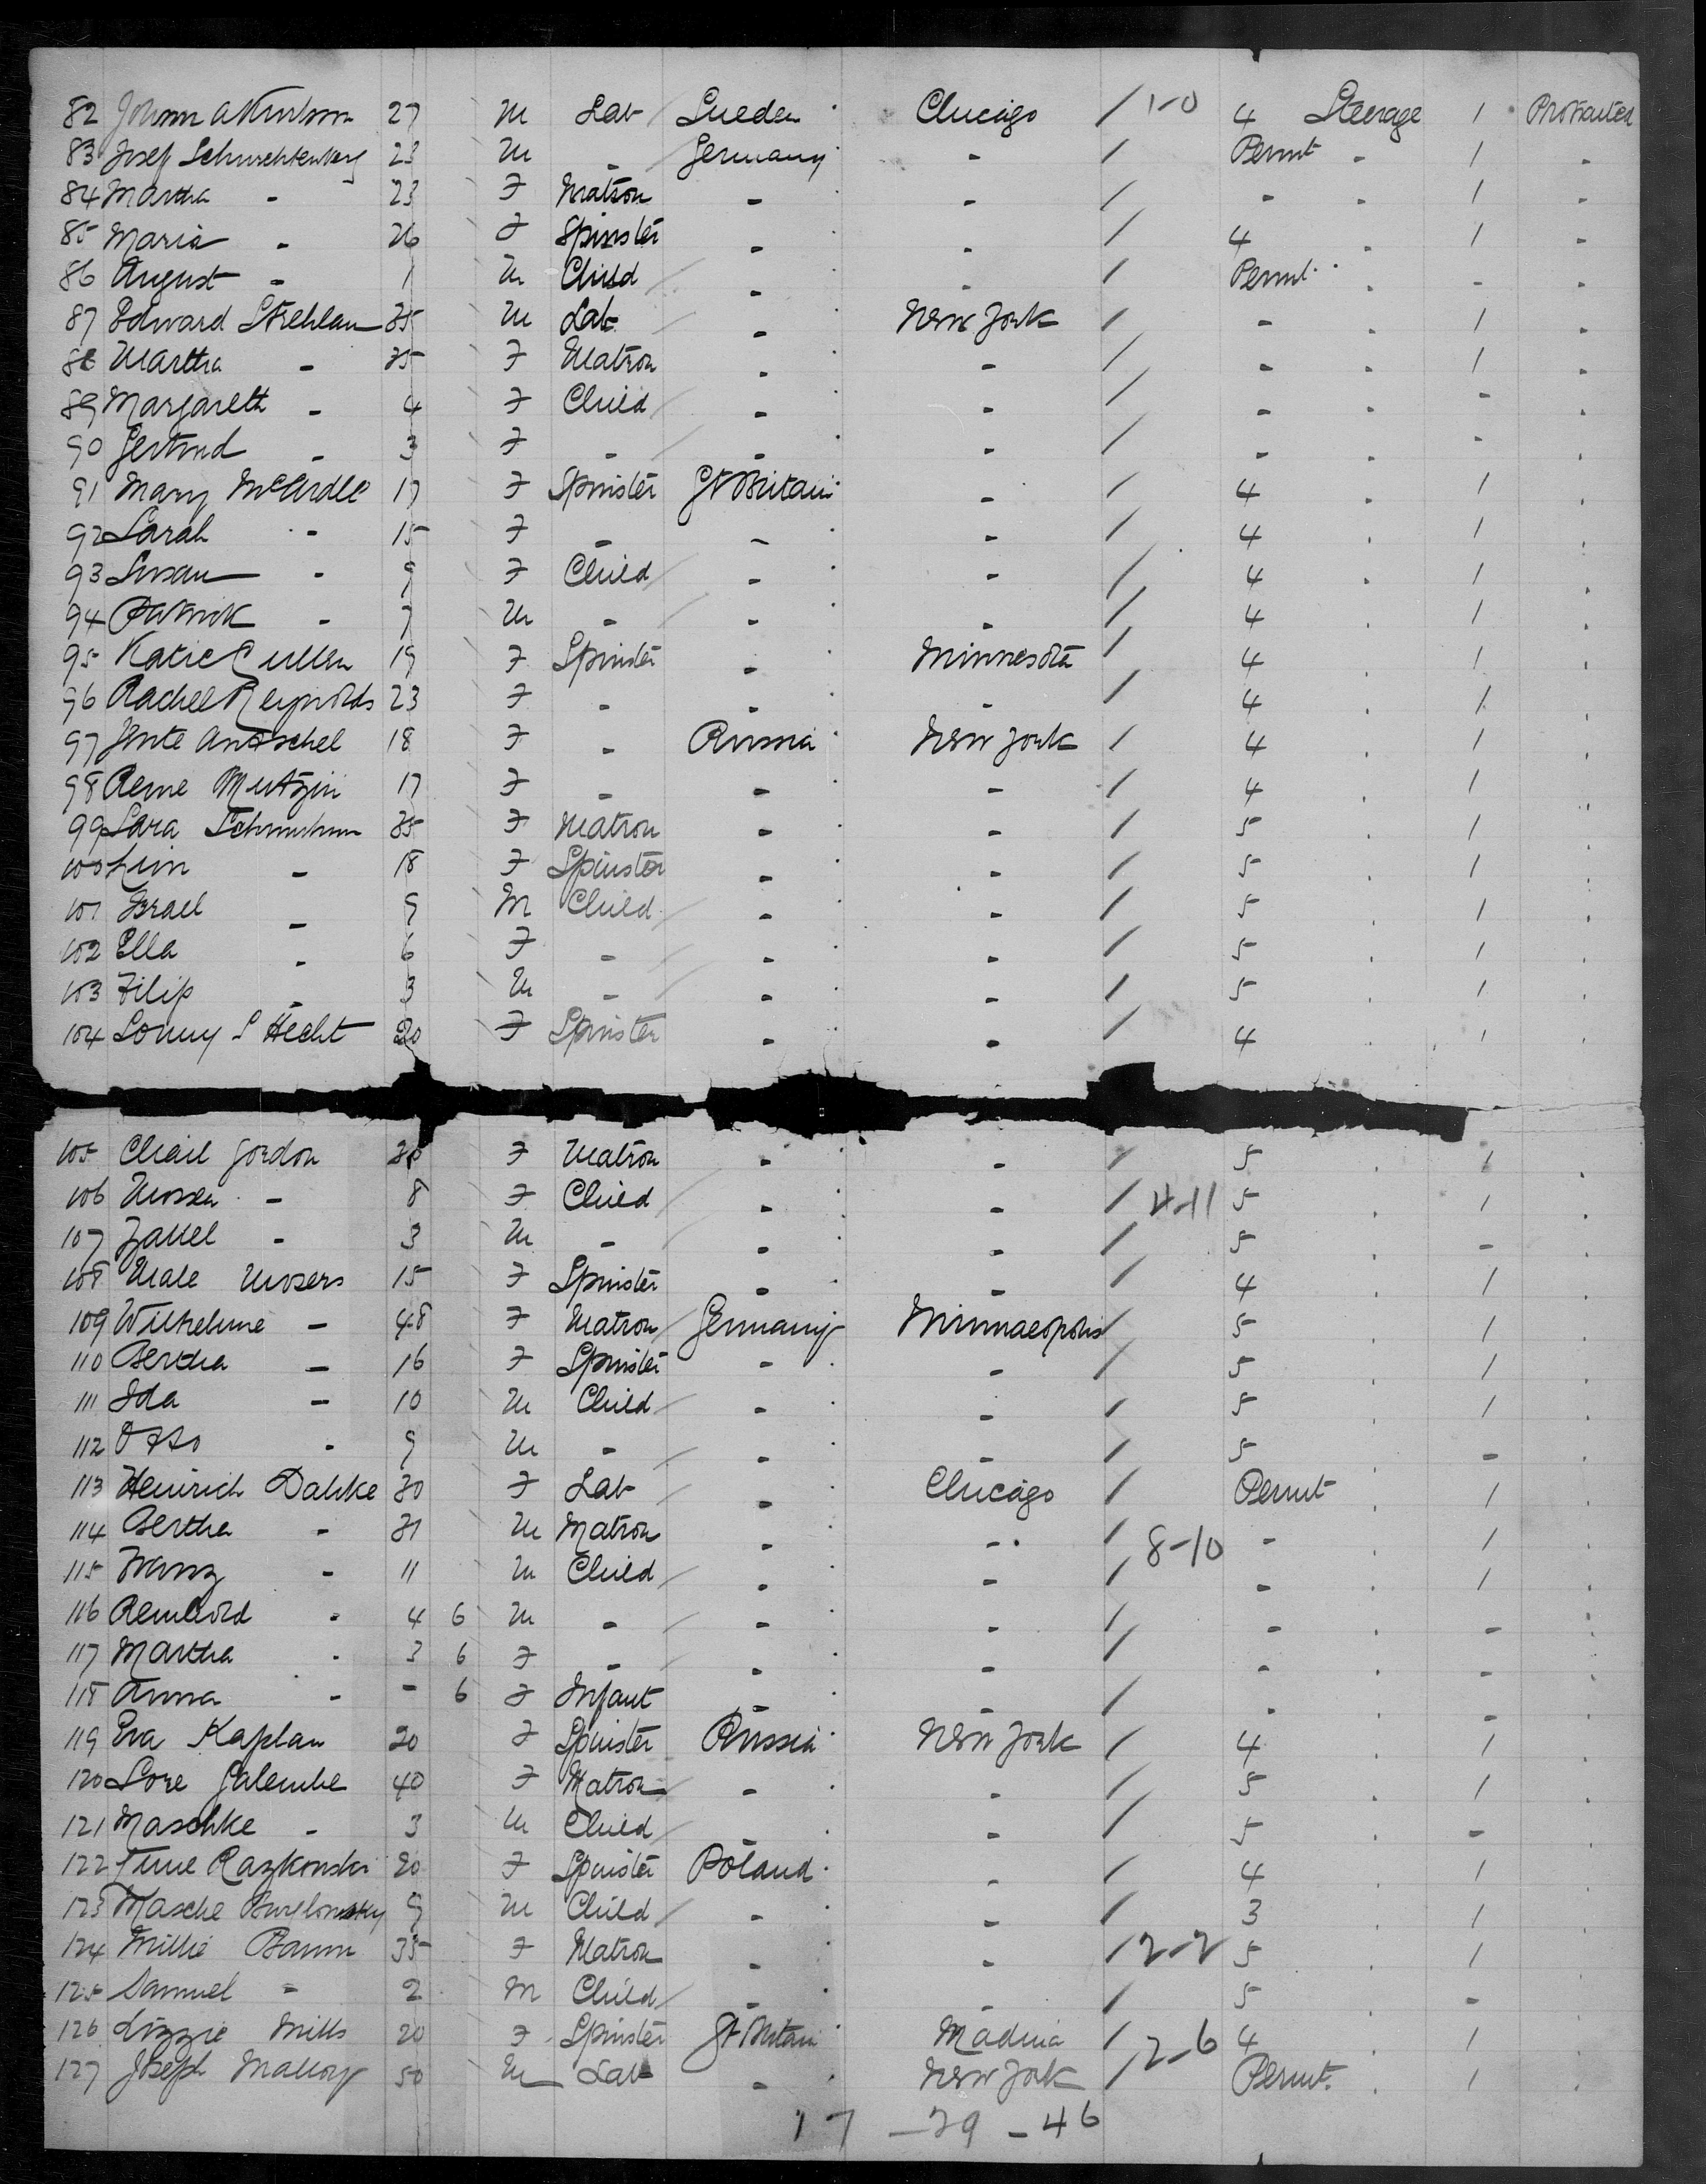 82 Johann 27 M Lab Sueden Chicago / 1-0 4 Steerage 1 Protracted
83 Josef 23 M - Germany - / Permt - 1 -
84 Martha - 23 F Matron - - / - - 1 -
85 Maria - 26 F Spinster - - / 4 - 1 -
86 August - 1 M Child - - / Permt - - -
87 Edward Strehlau 35 M Lab - New York / - - 1 -
88 Martha - 35 F Matron - - / - - 1 -
89 Margareth - 4 F Child - - / - - - -
90 Gertrud - 3 F - - - / - - - -
91 Mary McArdle 17 F Spinster Gt Britain - / 4 - 1 -
92 Sarah - 15 F - - - / 4 - 1 -
93 Susan - 9 F Child - - / 4 - 1 -
94 Patrick - 7 M - - - / 4 - 1 -
95 Katie Cullen 19 F Spinster - Minnesota / 4 - 1 -
96 Rachel Reynolds 23 F - - - / 4 - 1 -
97 Jente Antschel 18 F - Russia New York / 4 - 1 -
98 17 F - - - / 4 - 1 -
99 Sara 35 F Matron - - / 5 - 1 -
100 - 18 F Spinster - - / 5 - 1 -
101 Israel - 9 M Child - - / 5 - 1 -
102 Ella - 6 F - - - / 5 - 1 -
103 Filip - 3 M - - - / 5 - 1 -
104 S Hecht 20 F Spinster - - / 4 - 1 -
105 Gordon F Matron - - / 5 - 1 -
106 - 8 F Child - - / 4-11 5 - 1 -
107 - 3 M - - - / 5 - - -
108 Male Mosers 15 F Spinster - - / 4 - 1 -
109 Wilhelmine - 48 F Matron Germany Minnaeopolis / 5 - 1 -
110 Bertha - 16 F Spinster - - / 5 - 1 -
111 Ida - 10 M Child - - / 5 - 1 -
112 Otto - 9 M - - - / 5 - - -
113 Heinrich Dahlke 30 F Lab - Chicago / Permt - 1 -
114 Bertha - 31 M Matron - - / 8-10 - - 1 -
115 Franz - 11 M Child - - / - - 1 -
116 Reinhold - 4 6 M - - - / - - - -
117 Martha - 3 6 F - - - / - - - -
118 Anna - - 6 F Infant - - / - - - -
119 Eva Kaplan 20 F Spinster Russia New York / 4 - 1 -
120 Sore Galembe 40 F Matron - - / 5 - 1 -
121 Maschke - 3 M Child - - / 5 - - -
122 Razkonski 20 F Spinster Poland - / 4 - 1 -
123 Masche 9 M Child - - / 3 - 1 -
124 Millie Baum 35 F Matron - - / 2-2 5 - 1 -
125 Samuel - 2 M Child - - / 5 - - -
126 Lizzie Mills 20 F Spinster Gt Britain / 2-6 4 - 1 -
127 Joseph Malloy 50 M Lab - New York / Permt - 1 -
17 - 29 - 46